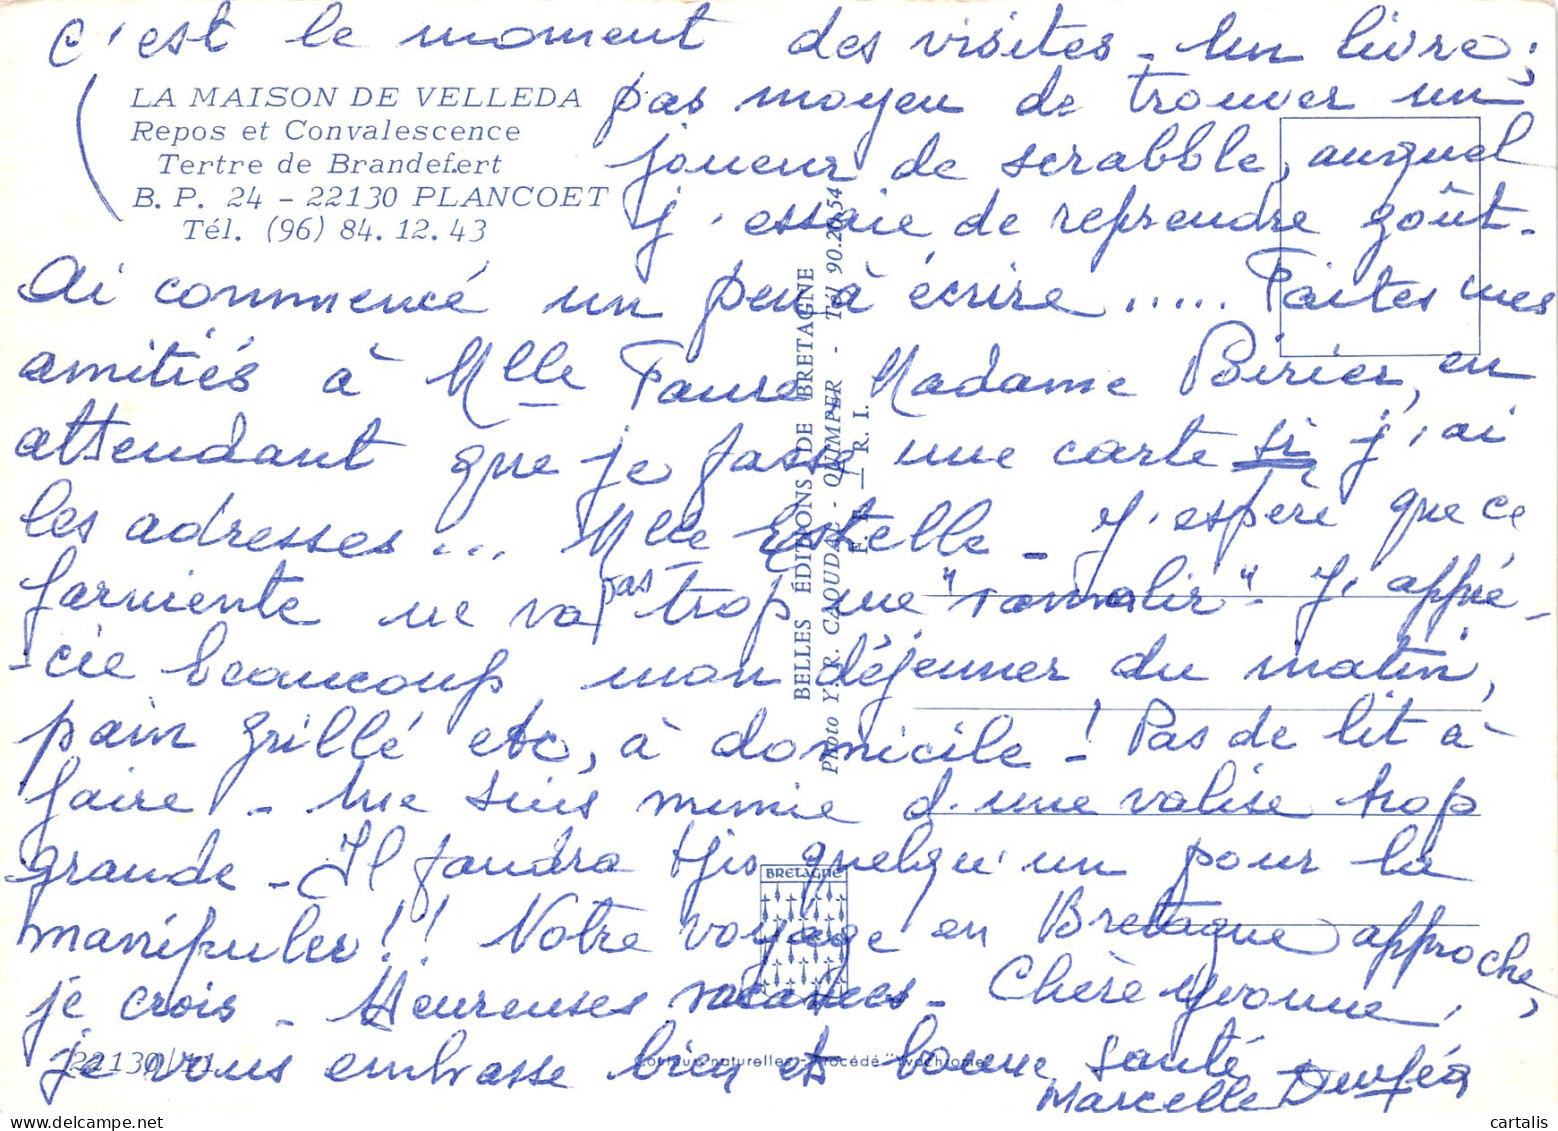 c'est le moment des visites - Un livre ;
LA MAISON DE VELLEDA
Repos et Convalescence
Tertre de Brandefert
B. P. 24 - 22130 PLANCOET
Tél. (96) 84. 12. 43
pas moyen de trouver un
joueur de scrabble, auquel
j'essaie de reprendre goût -
Ai commencé un peu à écrire ..... Faites mes
amitiés à Mlle Faure Madame Birier, en
attendant que je fasse une carte si j'ai
les adresses ... Mlle Estelle - J'espère que ce
farniente ne va pas trop me "ramolir" - J'appré-
-cie beaucoup mon déjeuner du matin,
pain grillé etc, à domicile ! Pas de lit à
faire - Me suis munie d'une valise trop
grande - Il faudra tjs quelqu'un pour la
manipuler !! Votre voyage en Bretagne approche,
je crois - Heureuses vacances - Chère Yvonne,
je vous embrasse bien et bonne santé -
Marcelle
BELLES ÉDITIONS DE BRETAGNE
Photo Y. R. CAOUDAL - QUIMPER - Tél 90.20.54
R. I.
BRETAGNE
22130/71
Couleurs naturelles - Procédé "Yvochrome"
cartalis